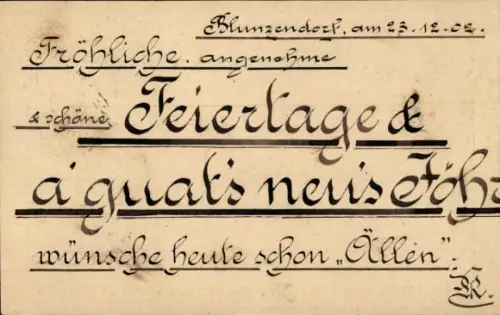 Blunzendorf, am 23.12.02.
Fröhliche, angenehme
& schöne Feiertage &
a' guat's neu's Föhr
wünsche heute schon „Ällen".